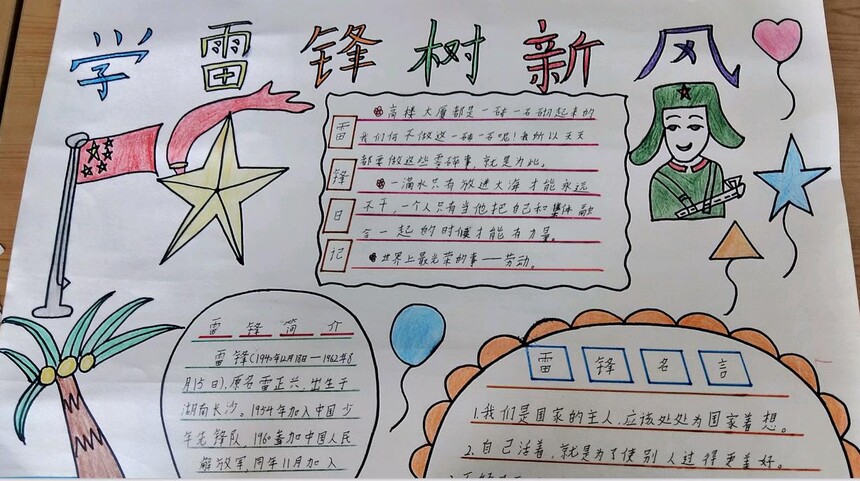 学雷锋树新风
雷锋日记
高楼大厦都是一砖一石砌起来的
我们何不做这一砖一石呢！我所以天天
都要做这些零碎事，就是为此。
一滴水只有放进大海才能永远
不干，一个人只有当他把自己和集体融
合一起的时候才能有力量。
世界上最光荣的事——劳动。
雷锋简介
雷锋(1940年12月18日—1962年8
月15日)，原名雷正兴，出生于
湖南长沙。1954年加入中国少
年先锋队，1960参加中国人民
解放军，同年11月加入
雷锋名言
1.我们是国家的主人，应该处处为国家着想。
2.自己活着，就是为了使别人过得更美好。